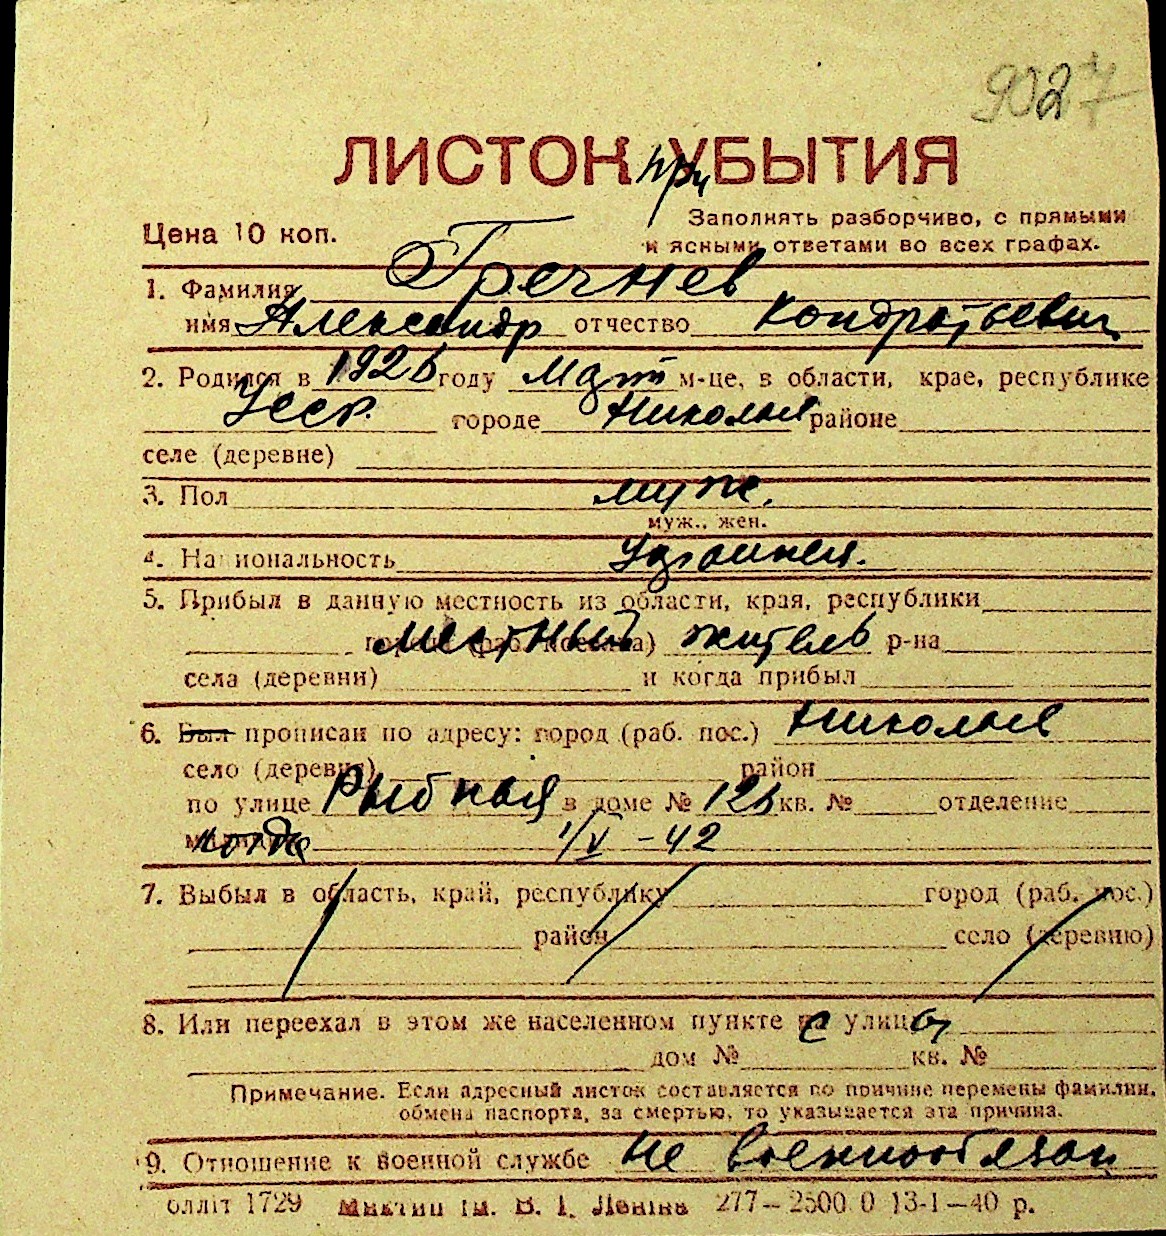 9027
ЛИСТОК при УБЫТИЯ
Цена 10 коп.
Заполнять разборчиво, с прямыми
и ясными ответами во всех графах.
1. Фамилия Гречнев
имя Александр отчество Кондратьевич
2. Родился в 1926 году Март м-це, в области, крае, республике
Усср. городе Николаев районе
селе (деревне)
3. Пол муж.
муж., жен.
4. Национальность Украинец.
5. Прибыл в данную местность из области, края, республики
города (раб. поселка) местный житель р-на
села (деревни) и когда прибыл
6. Был прописан по адресу: город (раб. пос.) Николаев
село (деревня) район
по улице Рыбная в доме № 126 кв. № отделение
когда 1/V - 42
7. Выбыл в область, край, республику город (раб. пос.)
район село (деревню)
8. Или переехал в этом же населенном пункте с улицы
дом № кв. №
Примечание. Если адресный листок составляется по причине перемены фамилии,
обмена паспорта, за смертью, то указывается эта причина.
9. Отношение к военной службе не военнообязан
1729 ім. В. І. Леніна 277—2500 0 13-1—40 р.